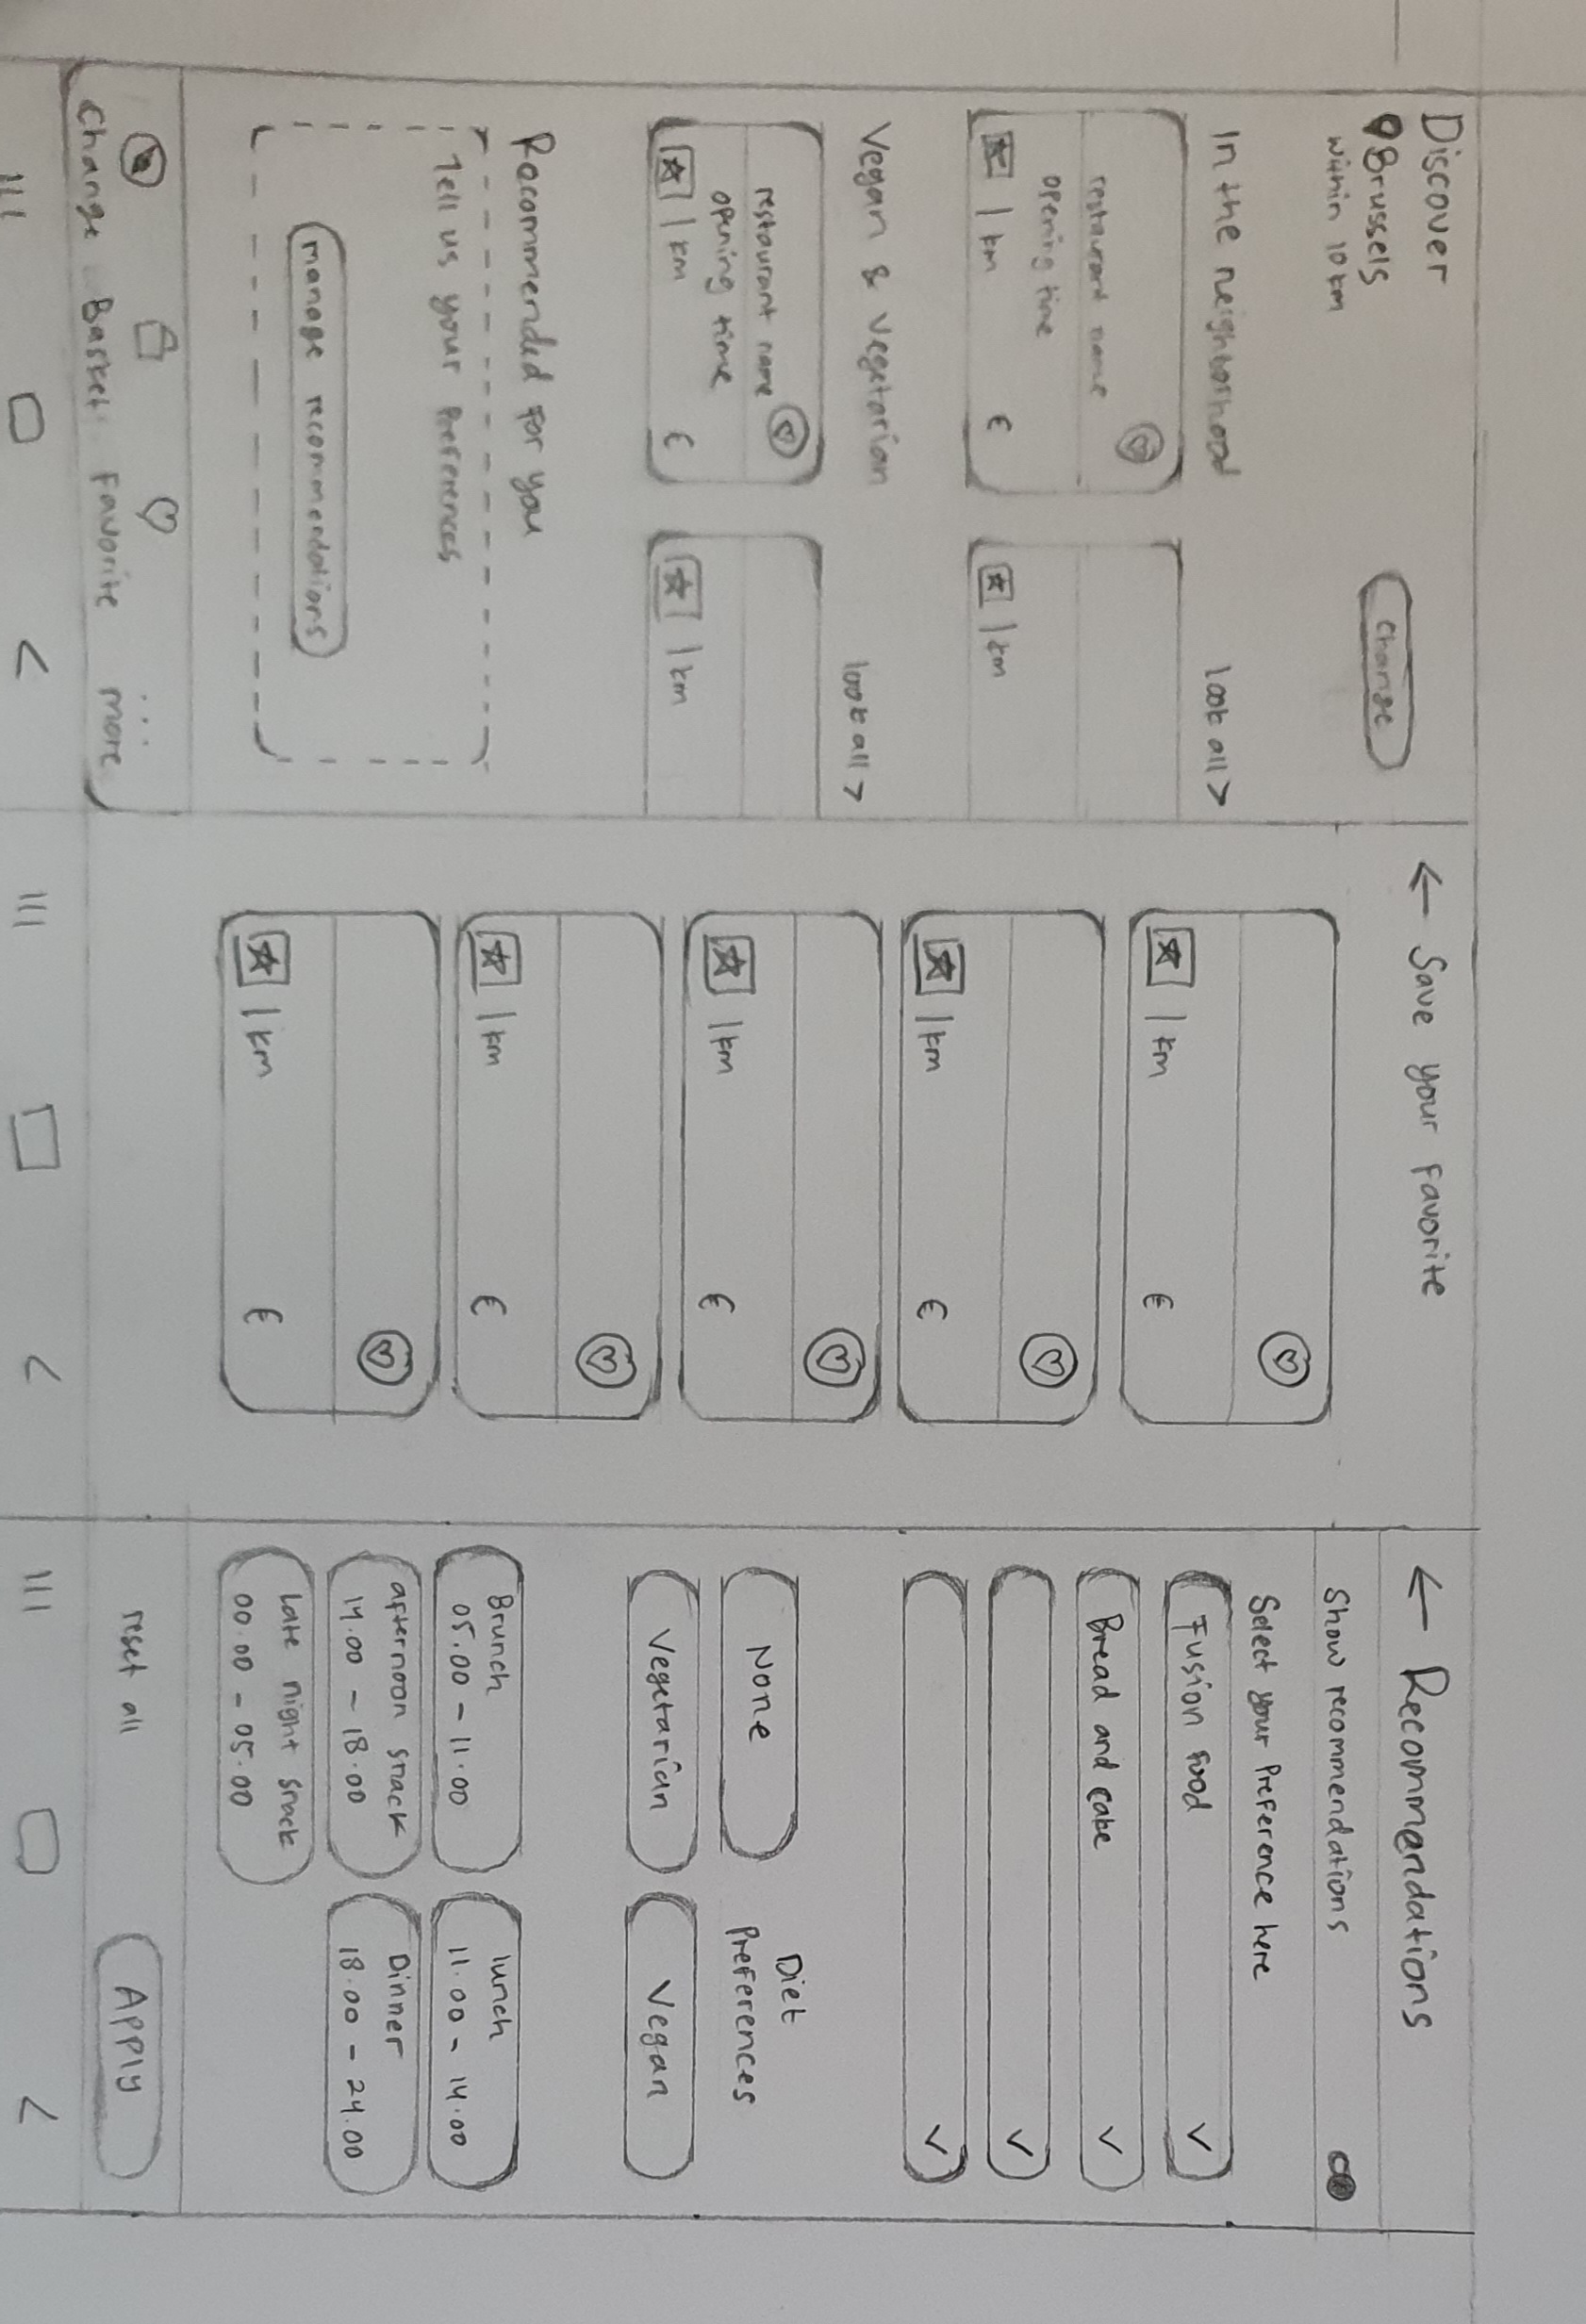 Discover
Brussels
Within 10 km
Change
In the neighborhood
look all >
restaurant name
opening time
| km
€
| km
Vegan & Vegetarian
look all >
restaurant name
opening time
| km
€
| km
Recommended For you
Tell us your Preferences
manage recommendations
Change
Basket
Favorite
...
more
← Save your Favorite
| km
€
| km
€
| km
€
| km
€
| km
€
← Recommendations
Show recommendations
Select your Preference here
Fusion Food
Bread and cake
None
Diet
Preferences
Vegetarian
Vegan
Brunch
05.00 - 11.00
lunch
11.00 - 14.00
afternoon snack
14.00 - 18.00
Dinner
18.00 - 24.00
Late night snack
00.00 - 05.00
reset all
APPLY